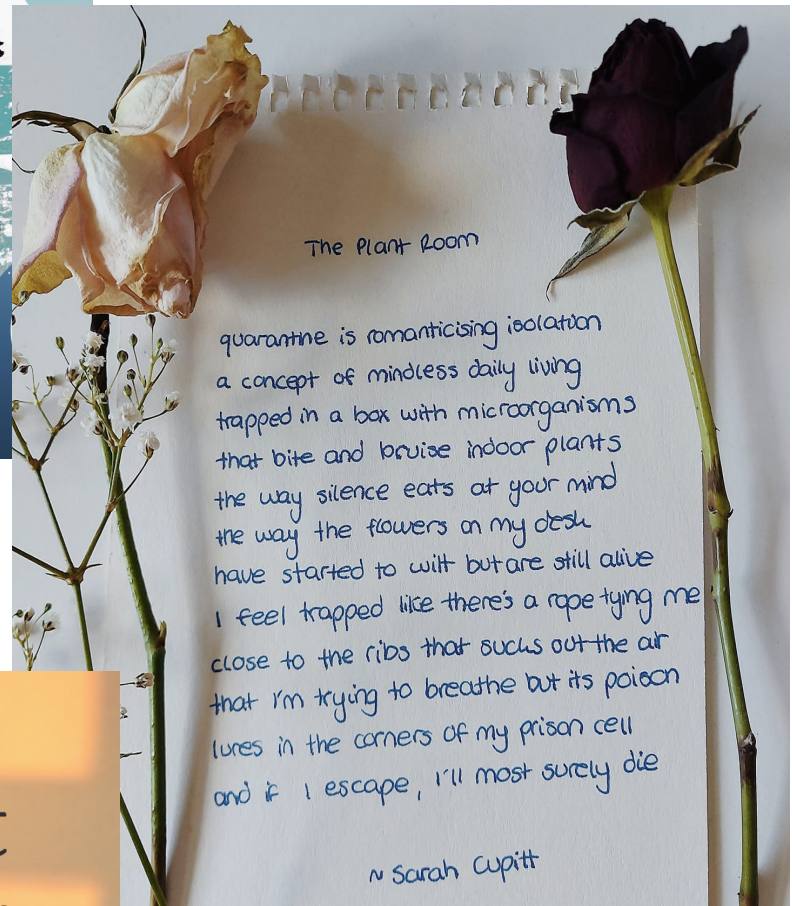 The Plant Room
quarantine is romanticising isolation
a concept of mindless daily living
trapped in a box with microorganisms
that bite and bruise indoor plants
the way silence eats at your mind
the way the flowers on my desk
have started to wilt but are still alive
I feel trapped like there's a rope tying me
close to the ribs that sucks out the air
that I'm trying to breathe but its poison
lures in the corners of my prison cell
and if I escape, I'll most surely die
~ Sarah Cupitt